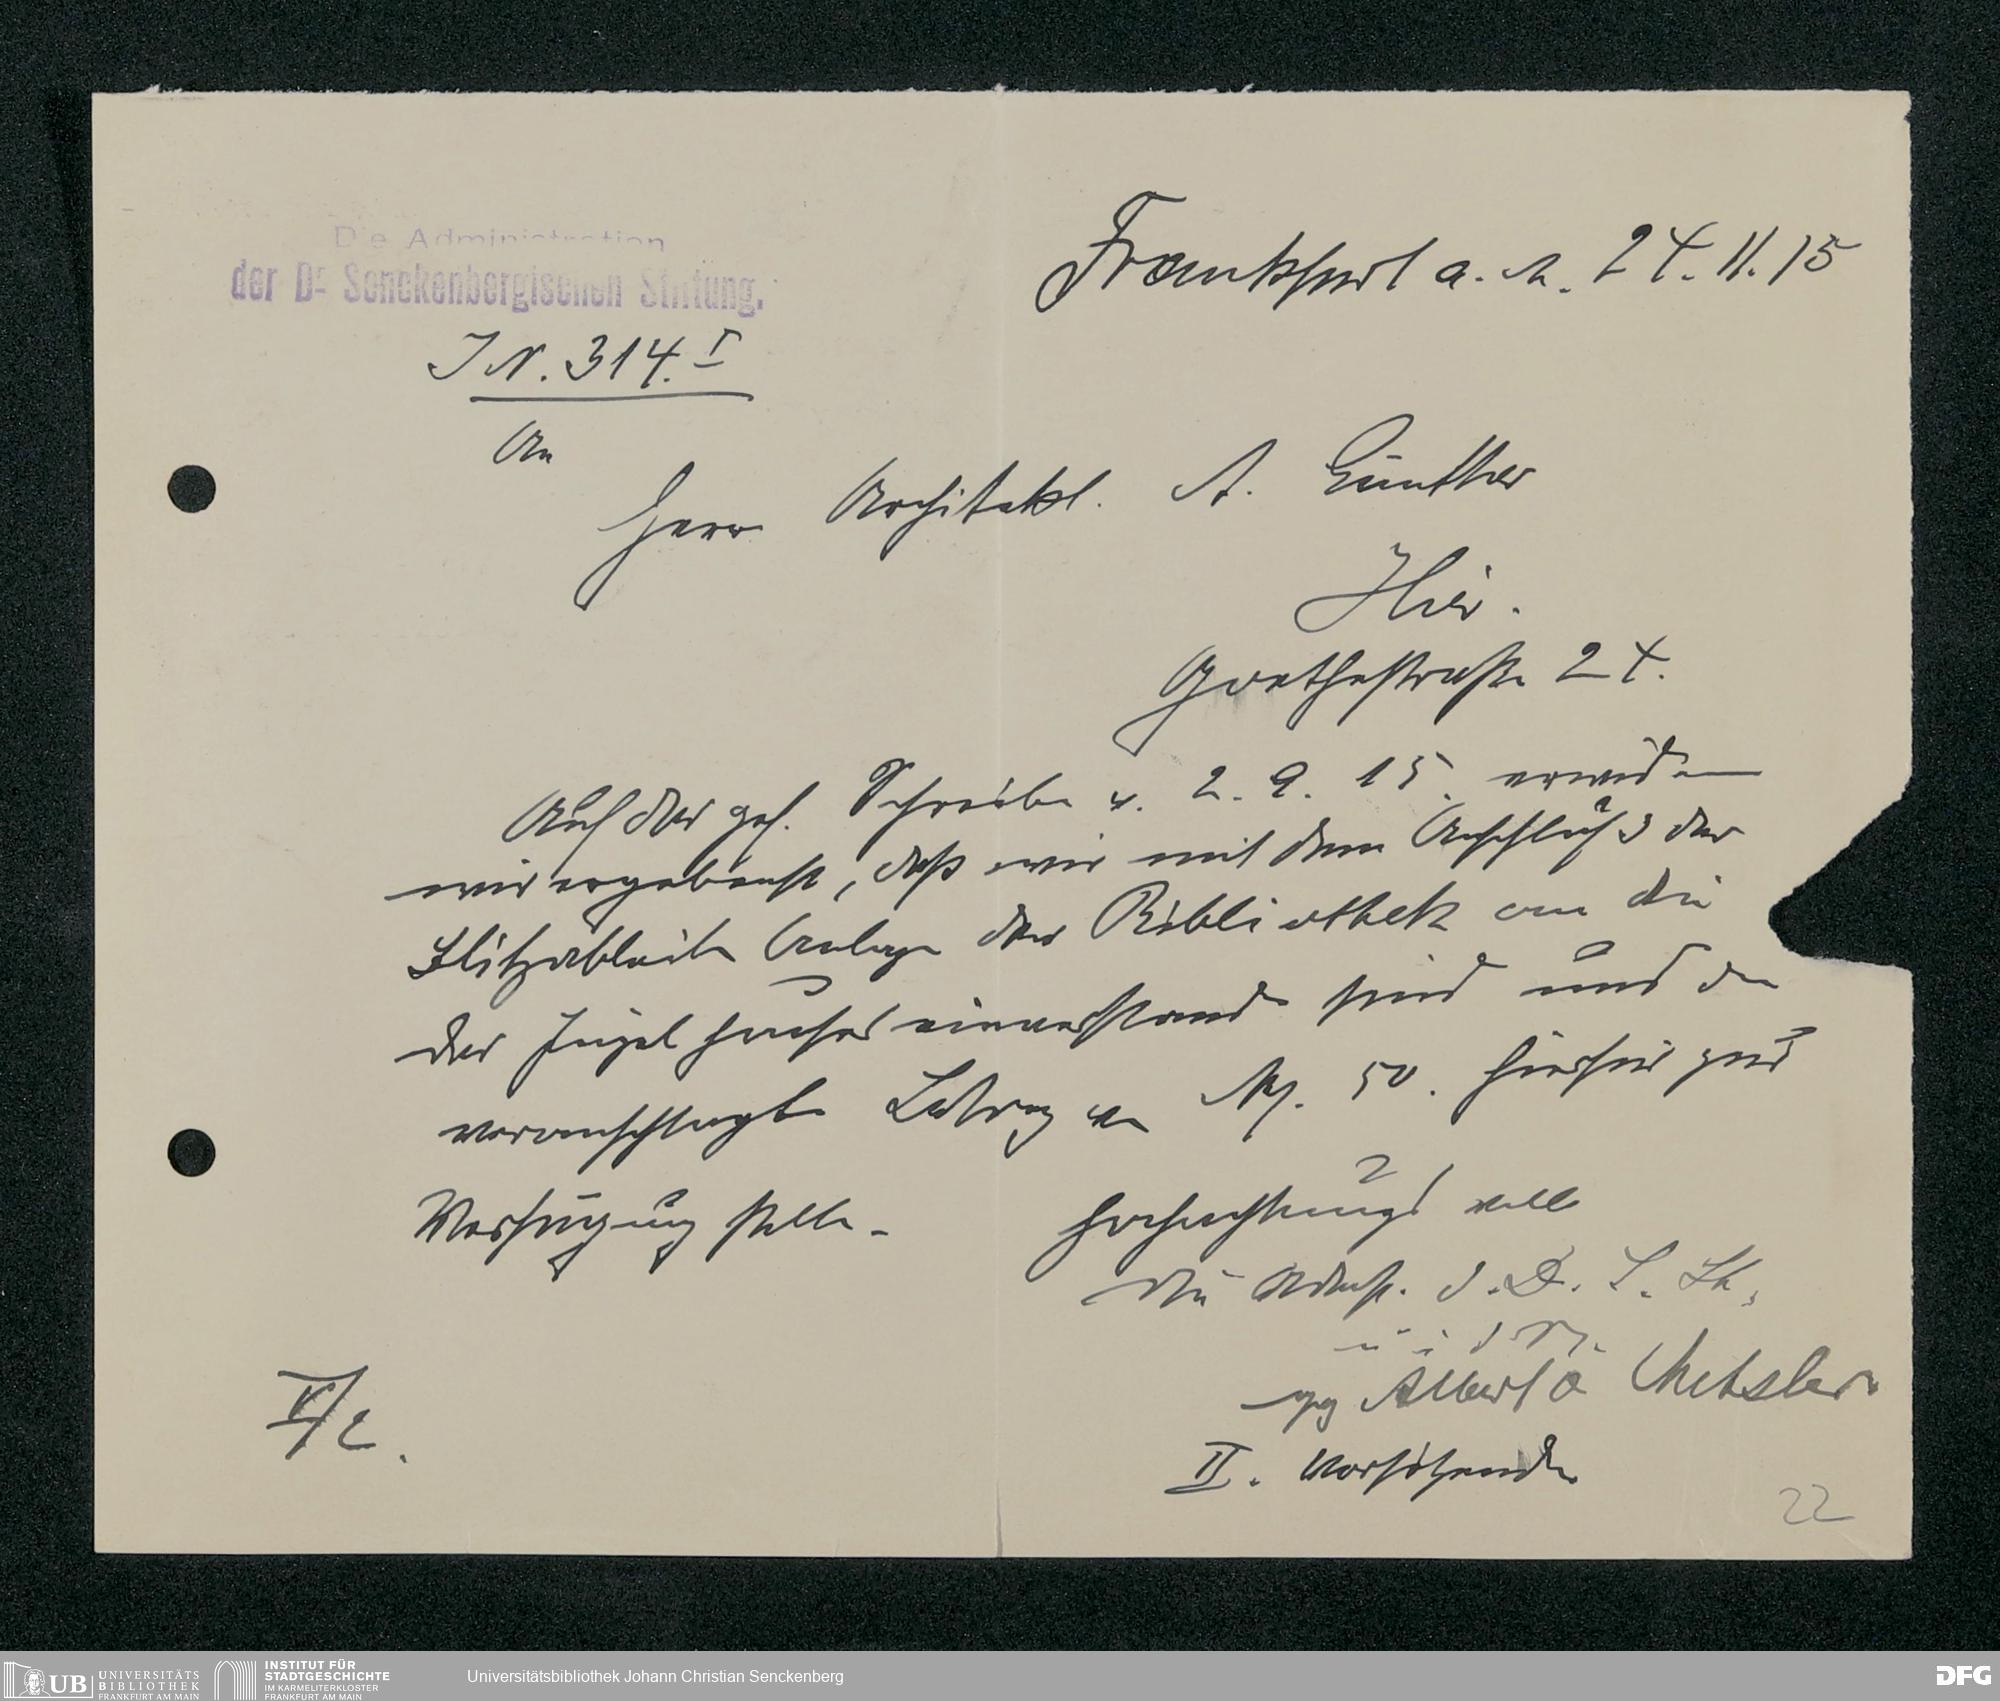 Die Administration
der Dr. Senckenbergischen Stiftung.
Frankfurt a. M. 24. 11. 15
J N. 314. I
An
Herrn Architekt. A. Günther
Hier.
Goethestraße 24.
Auf das gef. Schreiben v. 2. 9. 15. erwidern
wir ergebenst, daß wir mit dem Anschluß der
Blitzableiter Anlage der Bibliothek an die
des Jügelhauses einverstanden sind und den
veranschlagten Betrag von M. 50. hierfür zur
Verfügung stellen.
Hochachtungsvoll
Die Admst. d. D. S. St.
gez Albert v Metzler
II. Vorsitzender
22
UB UNIVERSITÄTS
BIBLIOTHEK
FRANKFURT AM MAIN
INSTITUT FÜR
STADTGESCHICHTE
IM KARMELITERKLOSTER
FRANKFURT AM MAIN
Universitätsbibliothek Johann Christian Senckenberg
DFG